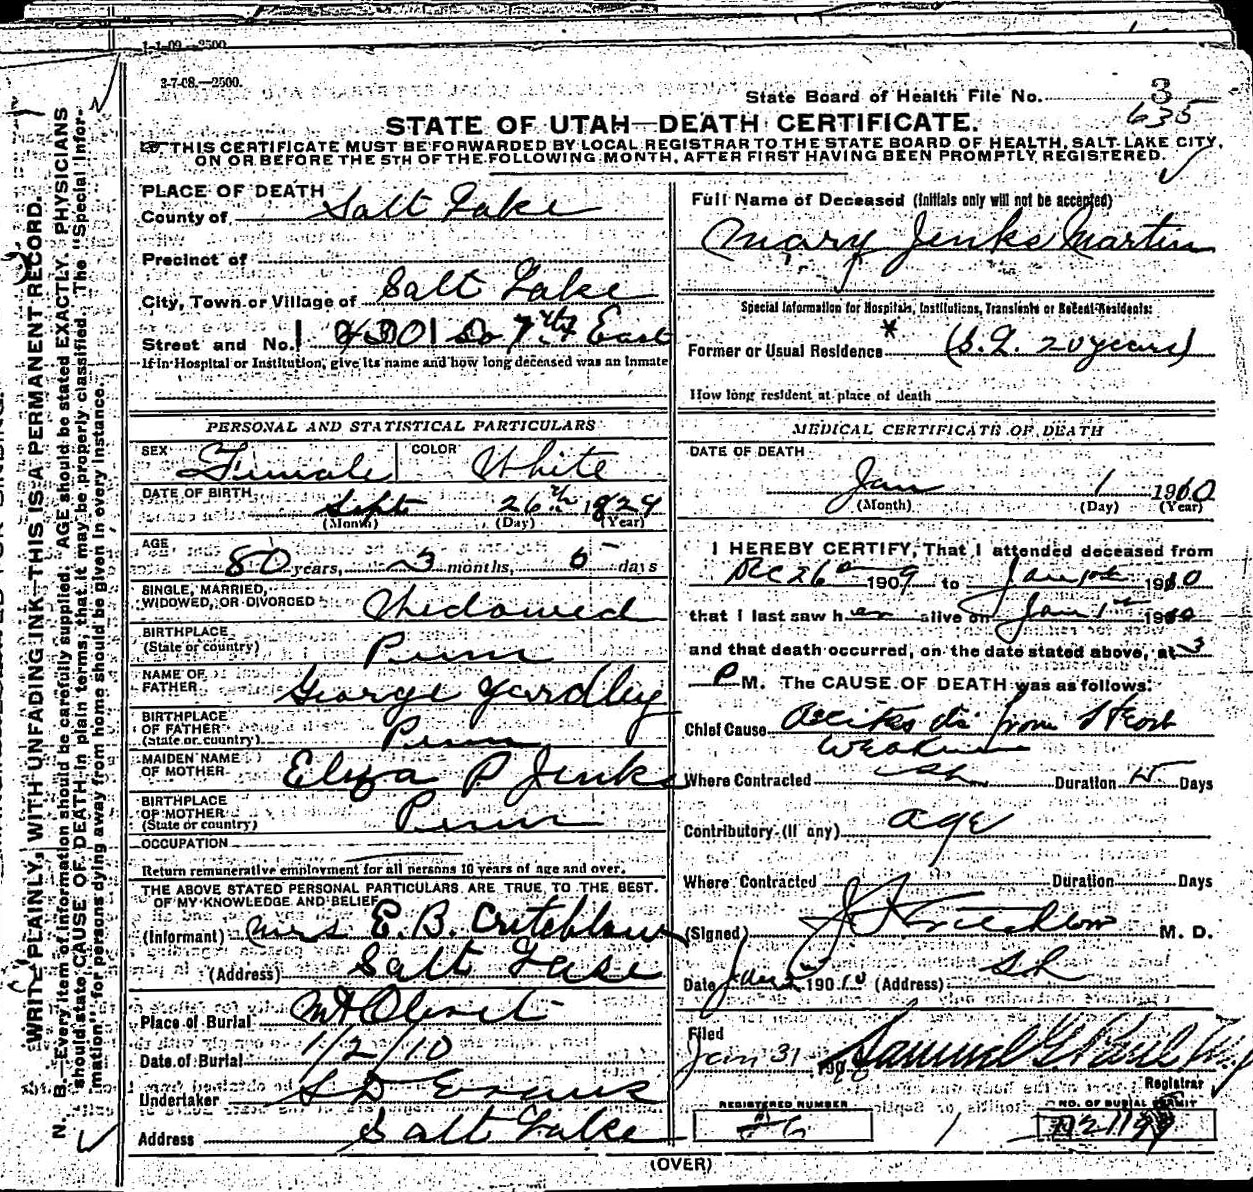 1-1-09—2500
3-7-08.—2500.
State Board of Health File No. 3
635
STATE OF UTAH—DEATH CERTIFICATE.
THIS CERTIFICATE MUST BE FORWARDED BY LOCAL REGISTRAR TO THE STATE BOARD OF HEALTH, SALT LAKE CITY,
ON OR BEFORE THE 5TH OF THE FOLLOWING MONTH, AFTER FIRST HAVING BEEN PROMPTLY REGISTERED.
WRITE PLAINLY, WITH UNFADING INK—THIS IS A PERMANENT RECORD.
N. B.—Every item of information should be carefully supplied; AGE should be stated EXACTLY. PHYSICIANS
should state CAUSE OF DEATH in plain terms, that it may be properly classified. The "Special Infor-
mation" for persons dying away from home should be given in every instance.
PLACE OF DEATH
County of Salt Lake
Precinct of
City, Town or Village of Salt Lake
Street and No. 4301 So 7th East
If in Hospital or Institution, give its name and how long deceased was an inmate
PERSONAL AND STATISTICAL PARTICULARS
SEX Female COLOR White
DATE OF BIRTH Sept 26th 1829
(Month) (Day) (Year)
AGE 80 years, 3 months, 5 days
SINGLE, MARRIED,
WIDOWED, OR DIVORCED Widowed
BIRTHPLACE
(State or country) Penn
NAME OF
FATHER George Yardley
BIRTHPLACE
OF FATHER
(state or country) Penn
MAIDEN NAME
OF MOTHER Elyza P Jenks
BIRTHPLACE
OF MOTHER
(State or country) Penn
OCCUPATION
Return remunerative employment for all persons 10 years of age and over.
THE ABOVE STATED PERSONAL PARTICULARS ARE TRUE TO THE BEST
OF MY KNOWLEDGE AND BELIEF
(Informant) Mrs E. B. Critchlow
(Address) Salt Lake
Place of Burial Mt Olivet
Date of Burial 1/2/10
Undertaker S D Evans
Address Salt Lake
Full Name of Deceased (Initials only will not be accepted)
Mary Jenks Martin
Special Information for Hospitals, Institutions, Transients or Recent Residents:
Former or Usual Residence * (S.L. 20 years)
How long resident at place of death
MEDICAL CERTIFICATE OF DEATH
DATE OF DEATH
Jan 1 1910
(Month) (Day) (Year)
I HEREBY CERTIFY, That I attended deceased from
Dec 26 1909 to Jan 1st 1910
that I last saw her alive on Jan 1st 1910
and that death occurred, on the date stated above, at 3
P M. The CAUSE OF DEATH was as follows:
Chief Cause from Heart
weakness
Where Contracted SL Duration Days
Contributory (If any) age
Where Contracted Duration Days
(Signed) Critchlow M. D.
Date Jan 1910 (Address) SL
Filed
Jan 31 190 Samuel G. Paul
Registrar
REGISTERED NUMBER
NO. OF BURIAL PERMIT
(OVER)